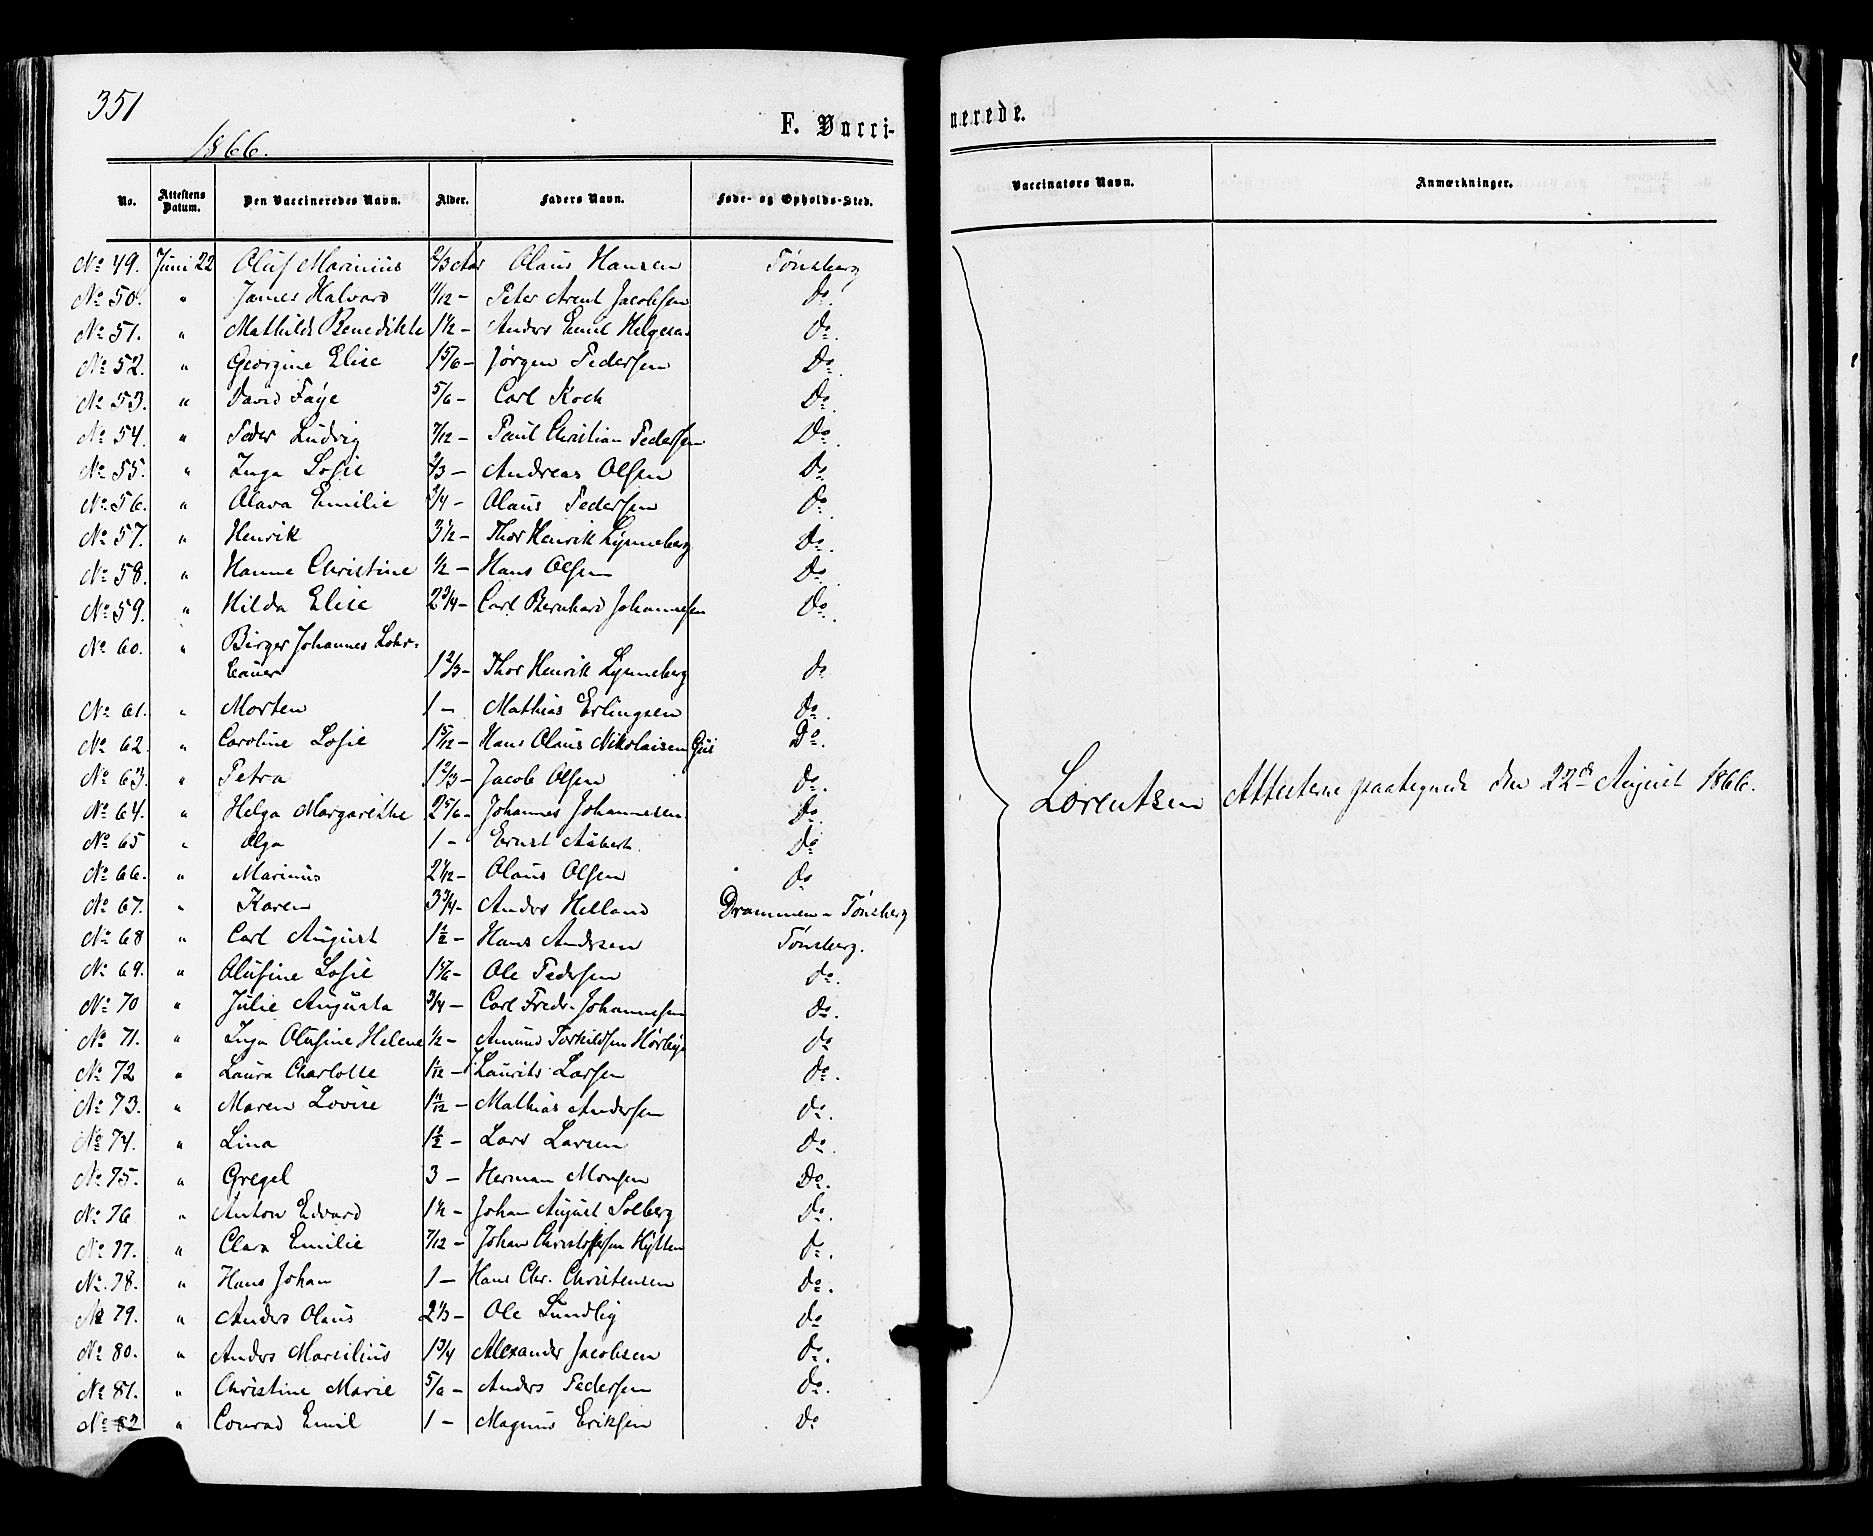 351
1866.
F. Vacci-
nerede.
No. Attestens Datum. Den Vaccineredes Navn. Alder. Faders Navn. Føde- og Opholds-Sted. Vaccinators Navn. Anmærkninger.
No 49. Juni 22 Oluf Marinius 2/3 Aar Olaus Hansen Tönsberg
No 50. " James Halvard 11/12 - Peter Arent Jacobsen Do.
No 51. " Mathilde Benedikte 1 1/2 - Anders Emil Helgesen Do.
No 52. " Georgine Elise 1 5/6 - Jørgen Pedersen Do.
No 53. " David Faye 5/6 - Carl Koch Do.
No 54. " Peder Ludvig 7/12 - Paul Christian Pedersen Do.
No 55. " Inga Sofie 2/3 - Andreas Olsen Do
No 56. " Olava Emilie 3/4 - Olaus Pedersen Do.
No 57. " Henrik 3 1/2 - Thor Henrik Lynneberg Do.
No 58. " Hanne Christine 1/2 - Hans Olsen Do
No 59. " Hilda Elise 2 3/4 - Carl Bernhard Johannesen Do.
No 60. " Birger Johannes Lohr-
bauer 1 2/3 - Thor Henrik Lynneberg do
No 61. " Morten 1 - Mathias Erlingsen do.
No 62. " Caroline Sofie 1 5/12 - Hans Olaus Nikolaisen Do.
No 63. " Petra 1 2/3 - Jacob Olsen do.
No 64. " Helga Margarethe 2 5/6 - Johannes Johannesen Do.
No 65 " Olga 1 - Ernst Aubert. Do
No 66. " Marinus 2 1/2 - Olaus Olsen do
No 67. " Karen 3 3/4 - Anders Helland Drammen - Tönsberg
No 68 " Carl August 1 1/2 - Hans Andersen Tönsberg.
No 69. " Olufine Sofie 1 1/6 - Ole Pedersen do.
No 70 " Julie Augusta 3/4 - Carl Fredr. Johannesen do.
No 71. " Inga Olufine Helene 1/2 - Amund Torkildsen Hørbye do
No 72 " Laura Charlotte 1 1/12 - Laurits Larsen do.
No 73. " Maren Lovise 1 11/12 - Mathias Andersen do.
No 74. " Lina 1 1/2 - Lars Larsen do.
No 75. " Gregel 3 - Herman Monsen Do.
No 76 " Anton Edvard 1 1/2 - Johan August Solberg do.
No 77. " Clara Emilie 7/12 - Johan Christofersen Hytten do.
No. 78. " Hans Johan 1 - Hans Chr. Christensen do.
No 79. " Anders Olaus 2 1/3 - Ole Sundlig do
No 80. " Anders Marsilius 1 3/4 Alexander Jacobsen do.
No 81. " Christine Marie 5/6 - Anders Pedersen do.
No 82 " Conrad Emil 1 - Magnus Eriksen do
Lorentsen Attesterne paategnede den 22de August 1866.